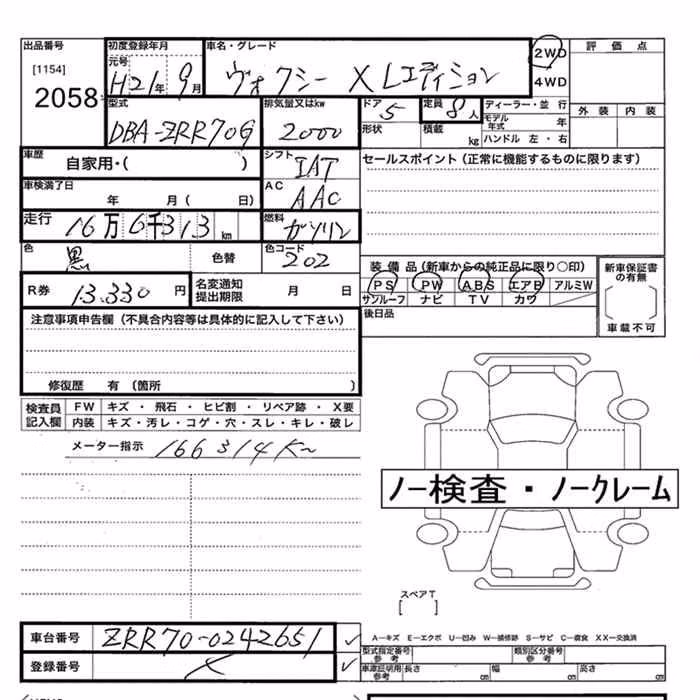 出品番号 初度登録年月 車名・グレード 2WD 評価点
[1154] 元号 H21年 9月 ヴォクシー XLエディション 4WD
2058
型式 排気量又はkw ドア 5 定員 8人 ディーラー・並行 外装 内装
DBA-ZRR70G 2000 形状 積載 kg モデル年式 年
ハンドル 左・右
車歴 自家用・( ) シフト IAT セールスポイント(正常に機能するものに限ります)
車検満了日 年 月( 日) AC AAC
走行 16万6千313km 燃料 ガソリン
色 黒 色替 色コード 202
装備品(新車からの純正品に限り○印) 新車保証書の有無
R券 13,330円 名変通知提出期限 月 日 PS PW ABS エアB アルミW
サンルーフ ナビ TV カワ
[ ]
車載不可
注意事項申告欄(不具合内容等は具体的に記入して下さい) 後日品
修復歴 有(箇所 )
検査員記入欄 FW キズ・飛石・ヒビ割・リペア跡・X要
内装 キズ・汚レ・コゲ・穴・スレ・キレ・破レ
メーター指示 166314K~
ノー検査・ノークレーム
スペアT
[ ]
車台番号 ZRR70-0242651 ✓ A―キズ E―エクボ U―凹み W―補修跡 S―サビ C―腐食 XX―交換済
型式指定番号 参考 類別区分番号 参考
登録番号 ✓ 車庫証明用参考 長さ cm 幅 cm 高さ cm